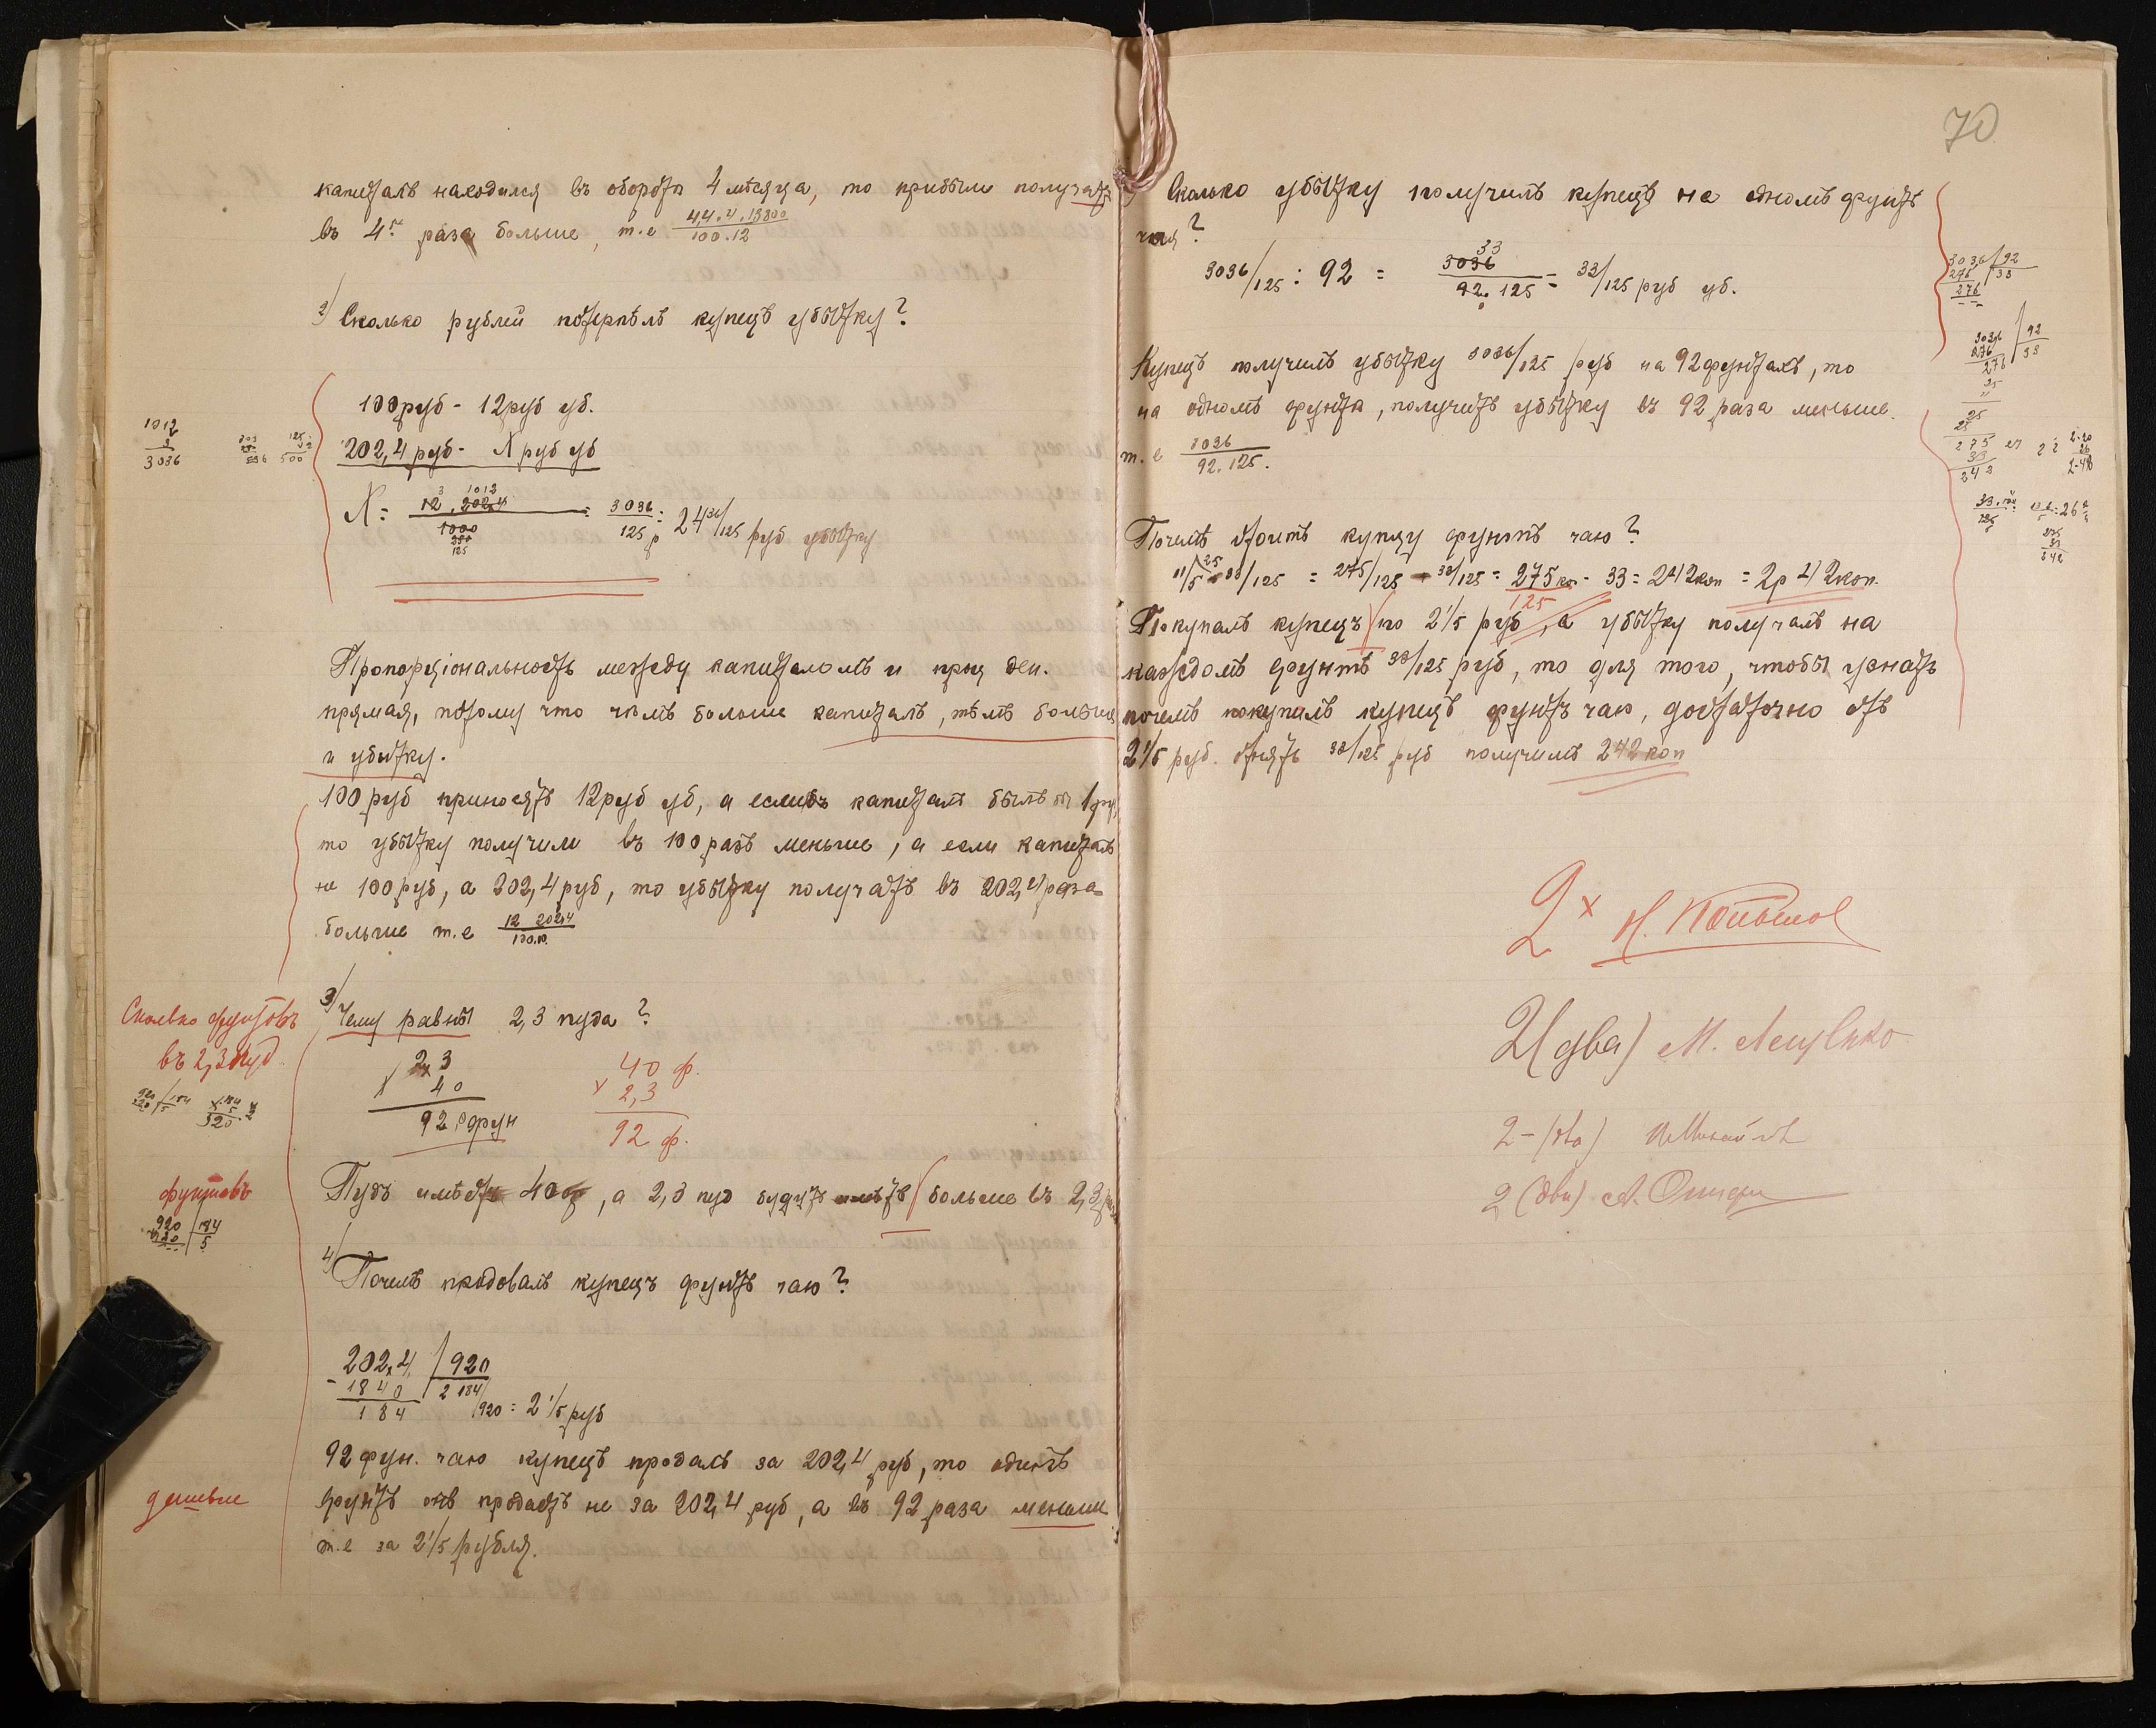 капиталъ находился въ оборотѣ 4 мѣсяца, то прибыли получатъ
въ 4 раза больше, т.е 4,4.4.13800 / 100.12
2) Сколько рублей потерпѣлъ купецъ убытку?
100руб - 12руб уб.
202,4 руб - X руб уб
1012
3
3036
X = 12.202,4 / 1000 = 3036 / 125 = 24 36/125 руб убытку
3 1012
250
125
Пропорціональность между капиталомъ и
прямая, потому что чѣмъ больше капиталъ, тѣмъ больше
и убытку.
100 руб приносятъ 12руб уб, а еслибъ капиталъ былъ бы 1 руб,
то убытку получили въ 100 разъ меньше, а если капиталъ
не 100 руб, а 202,4 руб, то убытку получатъ въ 202,4 раза
больше т.е 12 202,4 / 100.10.
Сколько фунтовъ
въ 2,3 пуд.
3) Чему равны 2,3 пуда?
2,3
x 40
92,0 фун
40 ф.
x 2,3
92 ф.
фунтовъ
920 | 184
920 5
Пудъ имѣетъ 40 ф, а 2,3 пуд будутъ имѣть больше въ 2,3 раза
4) Почемъ продовалъ купецъ фунтъ чаю?
202,4 | 920
- 1840 2 184/920 = 2 1/5 руб
184
92 фун. чаю купецъ продалъ за 202,4 руб, то одинъ
дешевле
фунтъ онъ продастъ не за 202,4 руб, а въ 92 раза меньше
т.е за 2 1/5 рубля.
70
Сколько убытку получилъ купецъ на одномъ фунтѣ
чая?
3036/125 : 92 = 3036 / 92.125 = 33/125 руб уб.
33
3036 | 92
276 33
276
Купецъ получилъ убытку 3036/125 руб на 92 фунтахъ, то
на одномъ фунтѣ, получитъ убытку въ 92 раза меньше.
т.е 3036 / 92.125.
3036 | 92
276 33
276
275
33
242
Почемъ стоитъ купцу фунтъ чаю?
11/5 - 33/125 = 275/125 - 33/125 = 275 коп - 33 = 242 коп = 2р 42коп.
125
Покупалъ купецъ по 2 1/5 руб, а убытку получалъ на
каждомъ фунтѣ 33/125 руб, то для того, чтобы узнать
почемъ покупалъ купецъ фунтъ чаю, достаточно отъ
2 1/5 руб. отнять 33/125 руб получимъ 242 коп
2 x Н.
2 (два) М.
2 - (два)
2 (два) А.